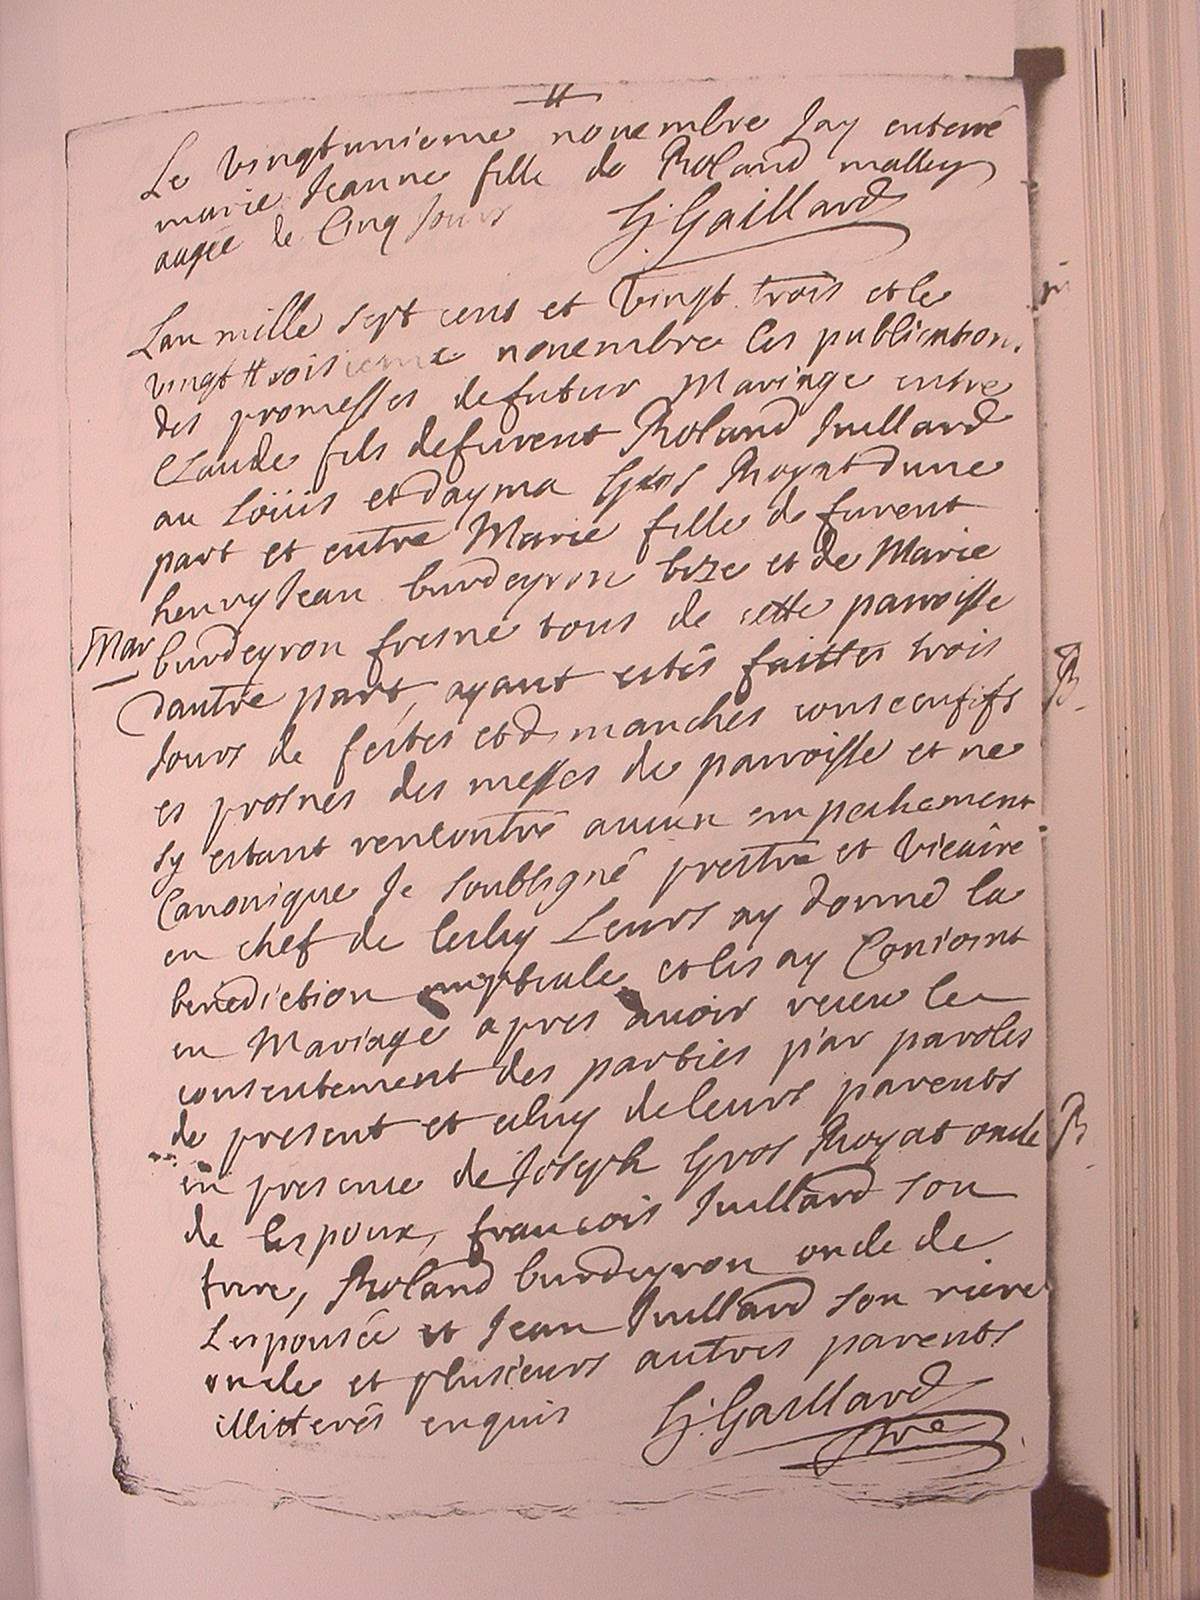 Le vingtunieme novembre Jay enterré
marie Jeanne fille de Roland malley
augée de Cinq Jours G. Gaillard
Lan mille sept cent et vingt trois et le
vingt troisieme novembre les publications
des promesses de futur Mariage entre
Claude fils defurent Roland Juillard
au Loüis et dayma Gros Royat dune
part et entre Marie fille de furent
henry Jean burdeyron bize et de Marie
Mar burdeyron fresne tous de cette parroisse
dautre part, ayant estés faittes trois
Jours de festes et dimanches consecutifs
es prosnes des messes de parroisse et ne
sy estant rencontré aucun empechement
Canonique Je soubsigné prestre et vicaire
en chef de Leurs ay donné la
benediction nuptiale et les ay Conioint
en Mariage apres avoir receu le
consentement des parties par paroles
de present et celuy de leurs parents
en presence de Joseph Gros Royat oncle
de lespoux, francois Juillard son
frere, Roland burdeyron oncle de
Lespousée et Jean Juillard son riere
oncle et plusieurs autres parents
illitterés enquis G. Gaillard
ptre